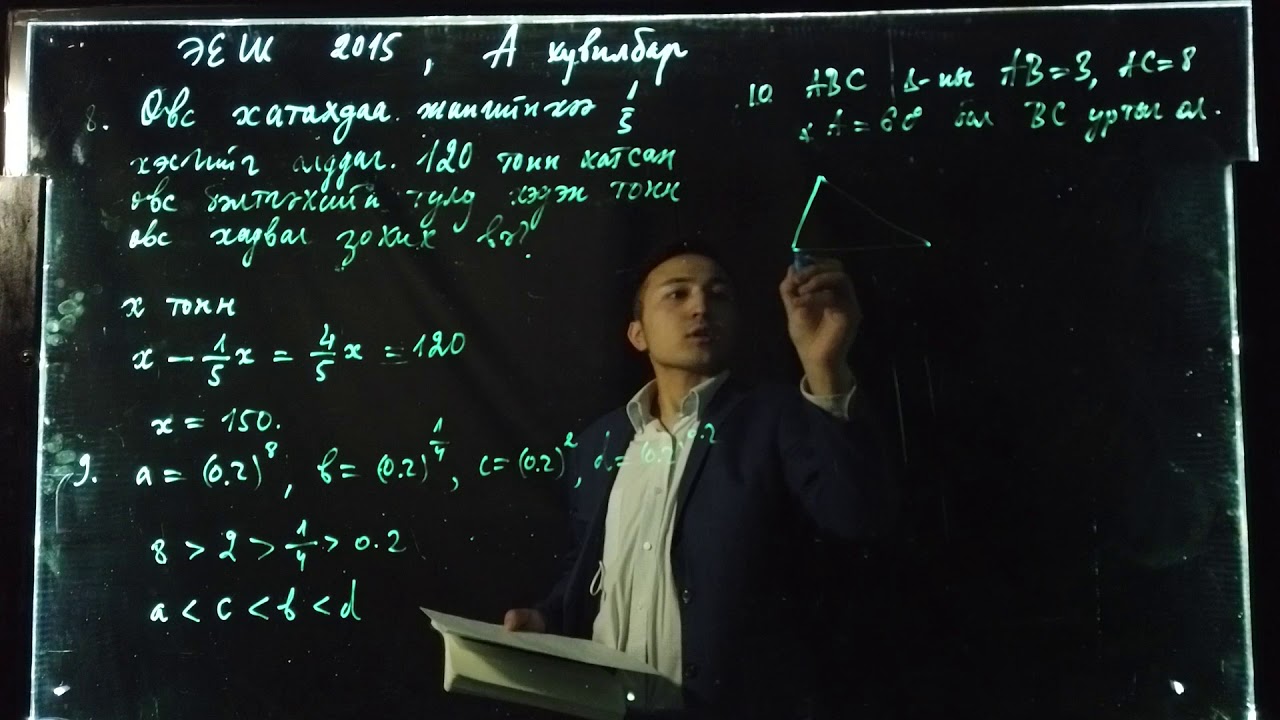 ЭЕШ 2015, А хувилбар
8. Өвс хатахдаа жингийнхээ 1/5
хэсгийг алддаг. 120 тонн хатсан
өвс бэлтгэхийн тулд хэдэн тонн
өвс хадвал зохих вэ?
x тонн
x - 1/5 x = 4/5 x = 120
x = 150.
9. a = (0.2)^8, b = (0.2)^{1/4}, c = (0.2)^2, d = (0.2)^{0.2}
8 > 2 > 1/4 > 0.2
a < c < b < d
10. ABC Δ-ны AB=3, AC=8
∡A = 60° бол BC уртыг ол.